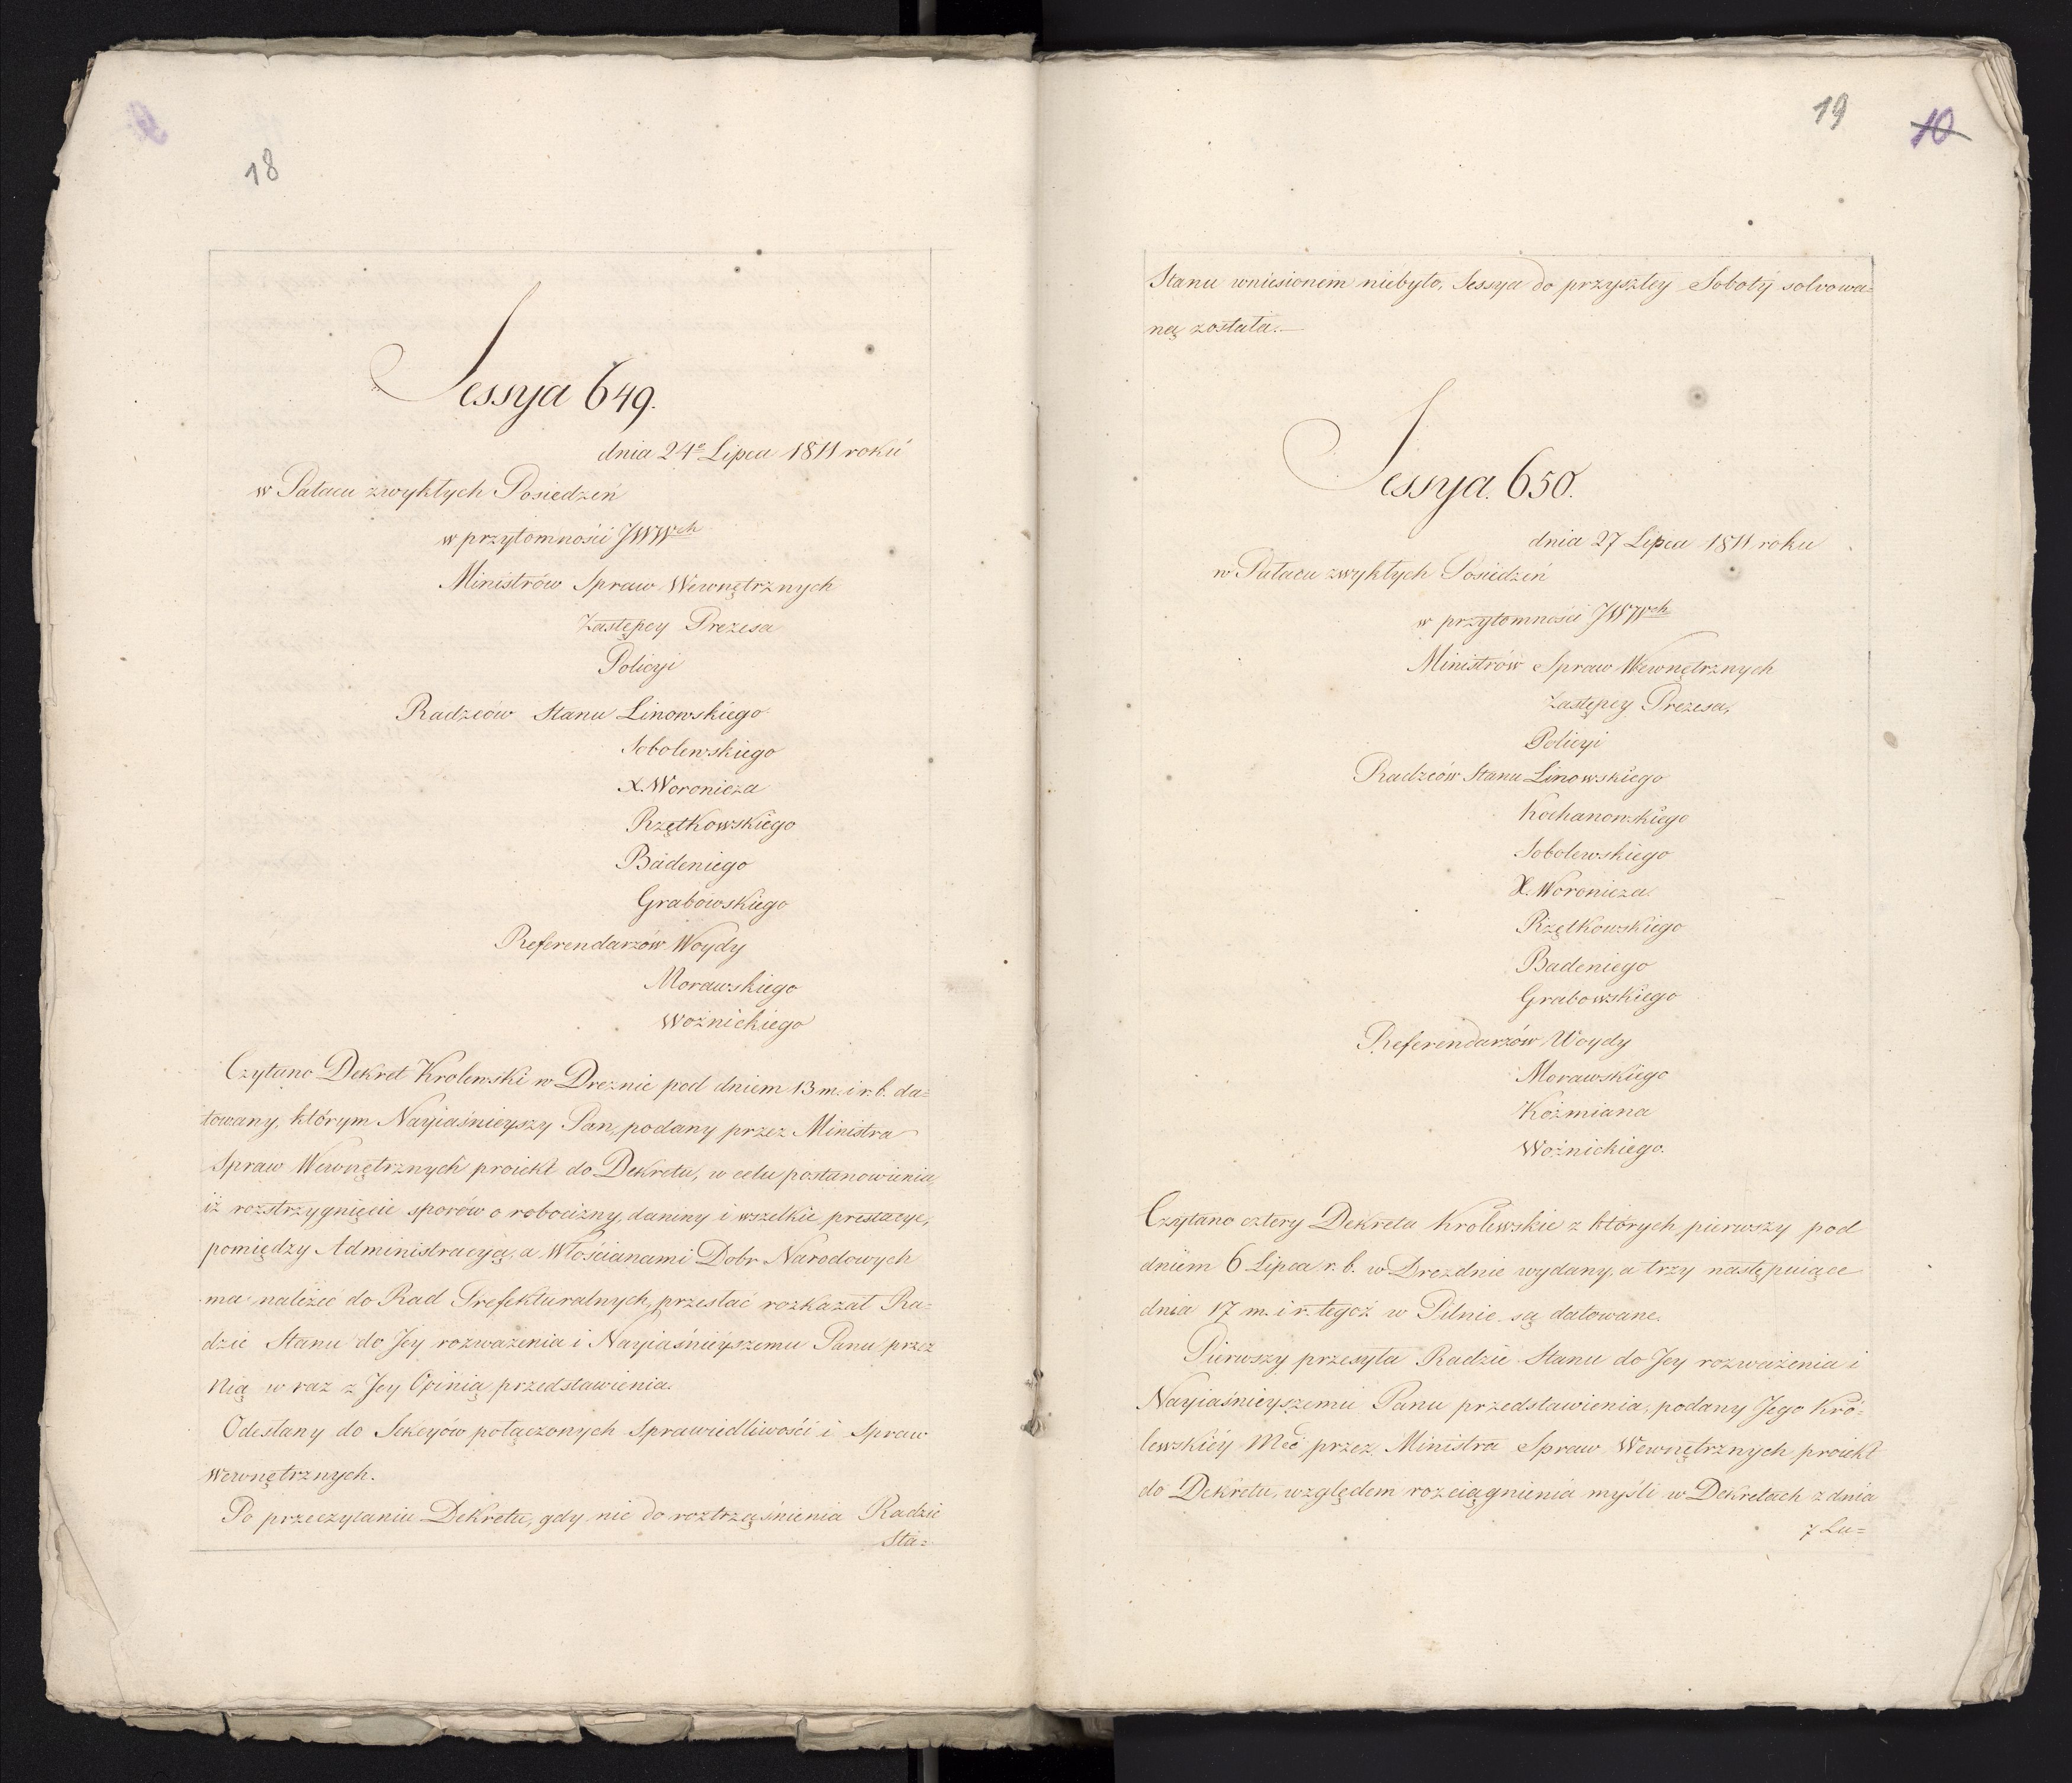 18
Sessya 649.
dnia 24º Lipca 1811 roku
w Pałacu zwykłych Posiedzeń
w przytomnośći JWWch
Ministrów Spraw Wewnętrznych
Zastępcy Prezesa
Policyi
Radzców Stanu Linowskiego
Sobolewskiego
X. Woronicza
Rzętkowskiego
Badeniego
Grabowskiego
Referendarzów Woydy
Morawskiego
Woźnickiego
Czytano Dekret Krolewski w Dreznie pod dniem 13 m. i r. b. da=
towany, którym Nayiaśnieyszy Pan, podany przez Ministra
Spraw Wewnętrznych proiekt do Dekretu, w celu postanowienia,
iż rozstrzygnięcie sporów o robocizny, daniny i wszelkie prestacye,
pomiędzy Administracyą, a Włościanami Dobr Narodowych
ma należeć do Rad Prefekturalnych, przesłać rozkazał Ra=
dzie Stanu do Jey rozważenia i Nayiaśnieyszemu Panu przez
Nią w raz z Jey Opinią przedstawienia.
Odesłany do Sekcyów połączonych Sprawiedliwośći i Spraw
Wewnętrznych.
Po przeczytaniu Dekretu, gdy nic do roztrząśnienia Radzie
Sta=
19
10
Stanu wniesionem niebyło, Sessya do przyszłey Soboty solvowa=
ną została.—
Sessya. 650.
dnia 27 Lipca 1811 roku
w Pałacu zwykłych Posiedzeń
w przytomności JWWch
Ministrów Spraw Wewnętrznych
Zastępcy Prezesa,
Policyi
Radzców Stanu Linowskiego
Kochanowskiego
Sobolewskiego
X. Woronicza
Rzętkowskiego
Badeniego
Grabowskiego
Referendarzów Woydy
Morawskiego
Koźmiana
Woźnickiego.
Czytano cztery Dekreta Krolewskie z których pierwszy pod
dniem 6 Lipca r. b. w Dreznie wydany, a trzy następuiące
dnia 17 m. i r. tegoż w Pilnie są datowane.
Pierwszy przesyła Radzie Stanu do Jey rozważenia i
Nayiaśnieyszemu Panu przedstawienia, podany Jego Kró=
lewskiéy Mći przez Ministra Spraw Wewnętrznych proiekt
do Dekretu, względem rozciągnienia myśli w Dekretach z dnia
7 Lu=